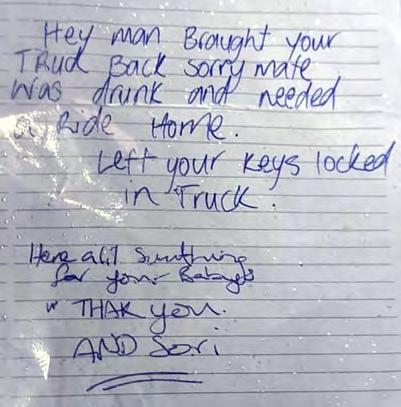 Hey man Brought your
TRUck Back sorry mate
was drunk and needed
a Ride Home.
Left your keys locked
in Truck.
Here a lit Sumthing
for your
THAK you.
AND Sori